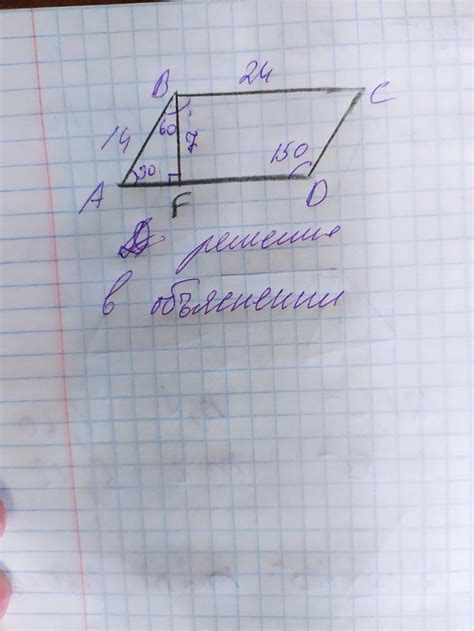 24
B
C
60
14
7
30
150
A
F
D
решение
в объяснении